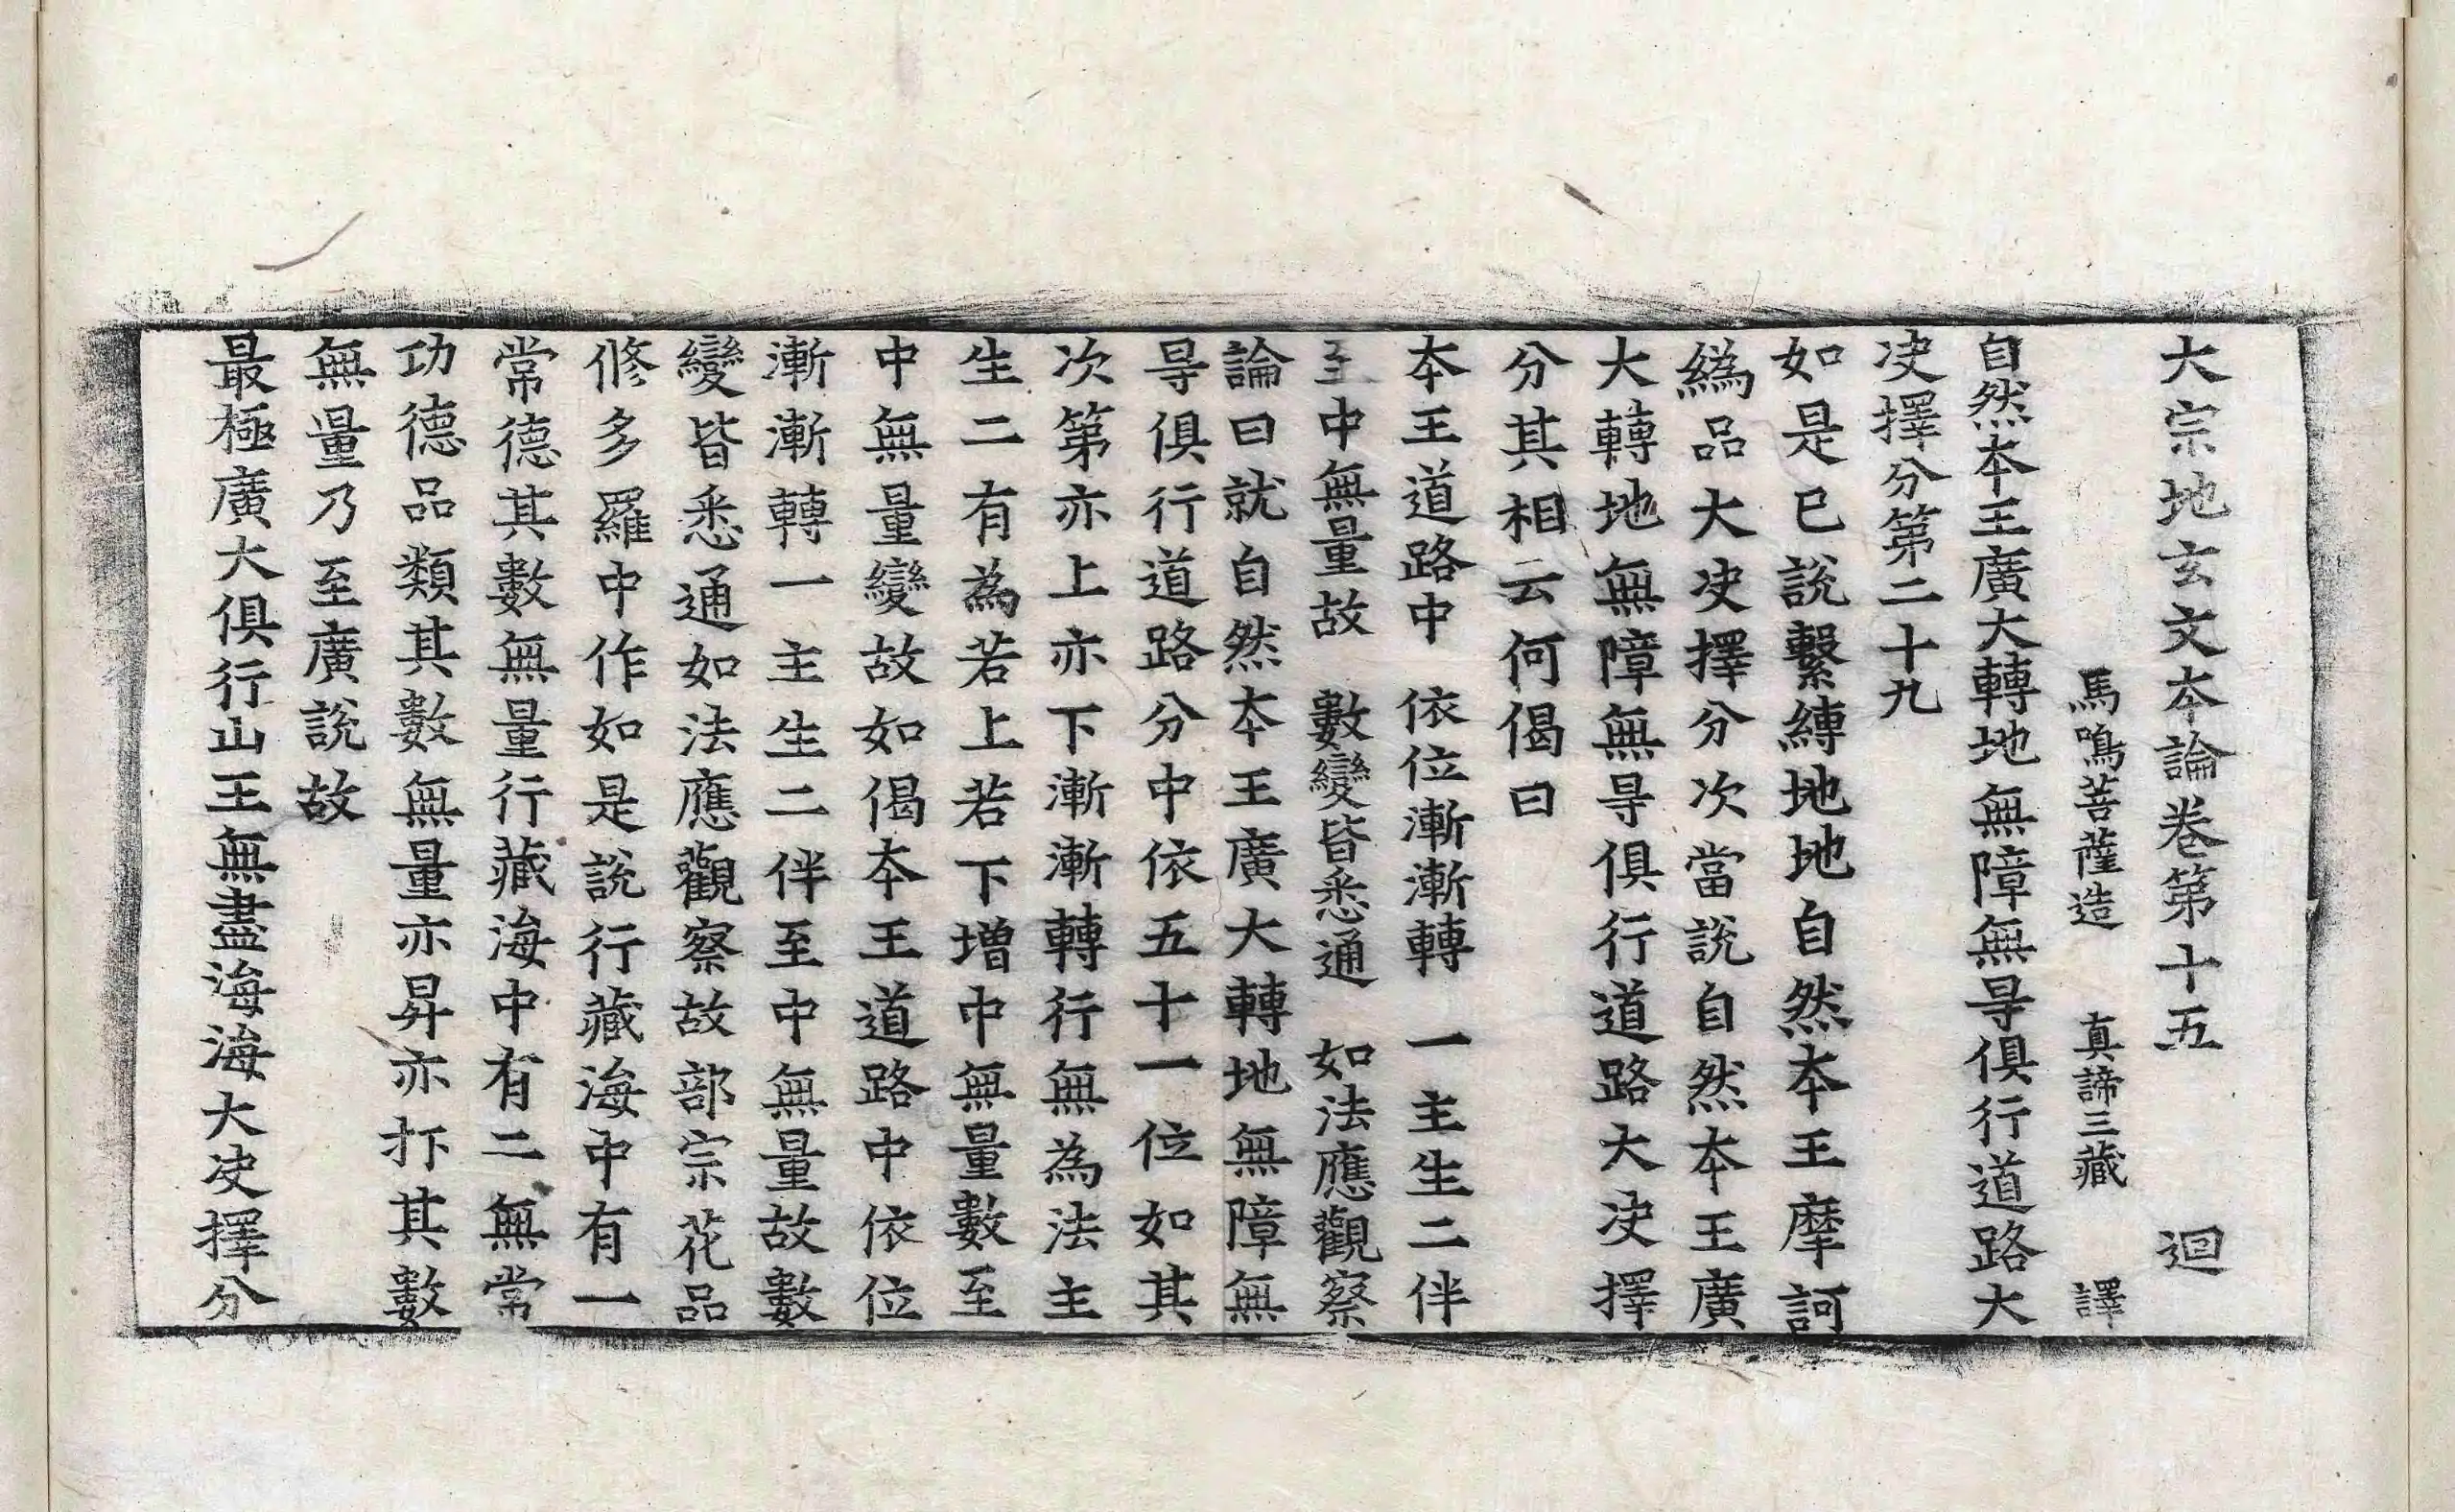 大宗地玄文夲論卷第十五　迴
馬鳴菩薩造　真諦三藏　譯
自然夲王廣大轉地無障無㝵俱行道路大
决擇分第二十九
如是已說繫縛地地自然夲王摩訶
為品大决擇分次當說自然夲王廣
大轉地無障無㝵俱行道路大决擇
分其相云何偈曰
夲王道路中　依位漸漸轉　一主生二伴
至中無量故　數變皆悉通　如法應觀察
論曰就自然夲王廣大轉地無障無
㝵俱行道路分中依五十一位如其
次第亦上亦下漸漸轉行無為法主
生二有為若上若下增中無量數至
中無量變故如偈夲王道路中依位
漸漸轉一主生二伴至中無量故數
變皆悉通如法應觀察故部宗花品
修多羅中作如是說行藏海中有一
常德其數無量行藏海中有二無常
功德品類其數無量亦昇亦拤其數
無量乃至廣說故
最極廣大俱行山王無盡海海大决擇分